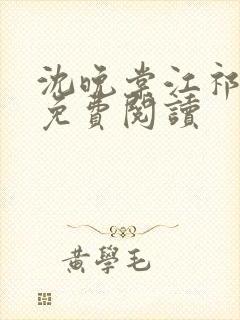 沈晚棠江祁
免費閱讀
黃學毛